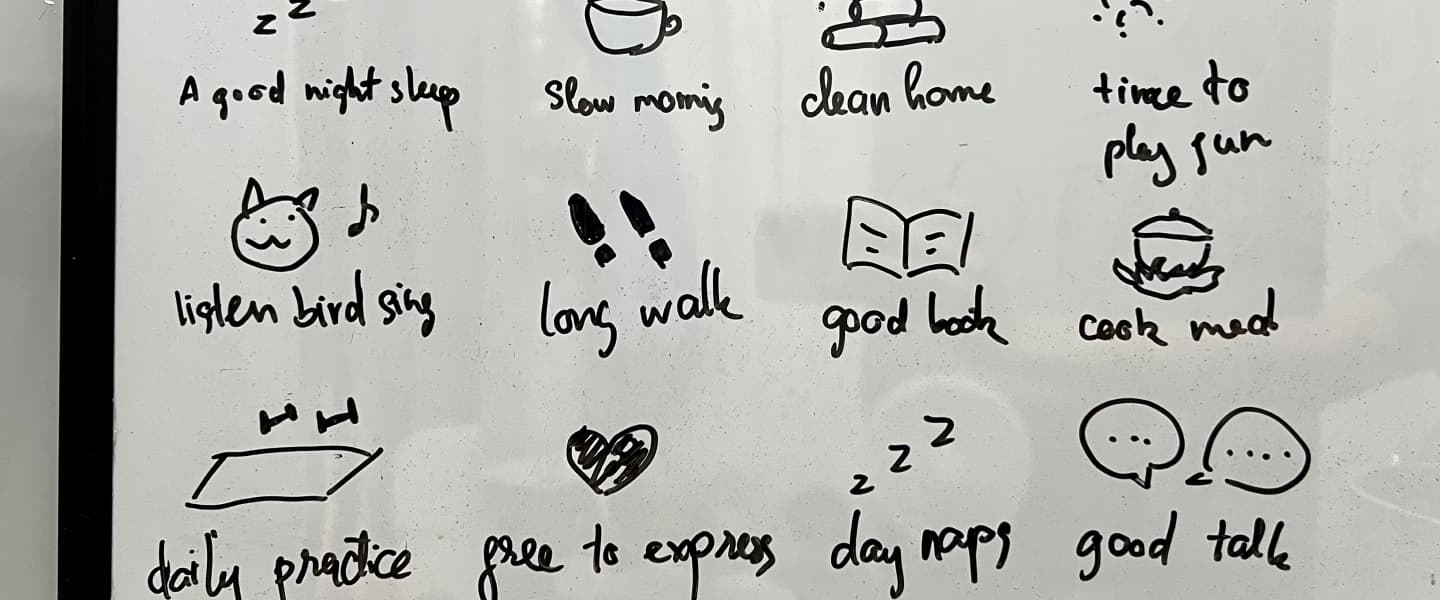 z z
A good night sleep
slow mornig
clean home
time to
play fun
listen bird sing
long walk
good book
cook meal
z z z
daily practice
free to express
day naps
good talk